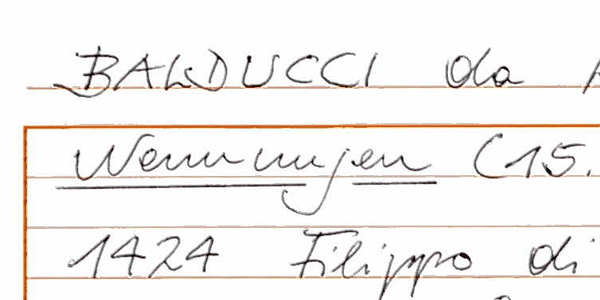 BALDUCCI da
Nennungen (15.
1424 Filippo di